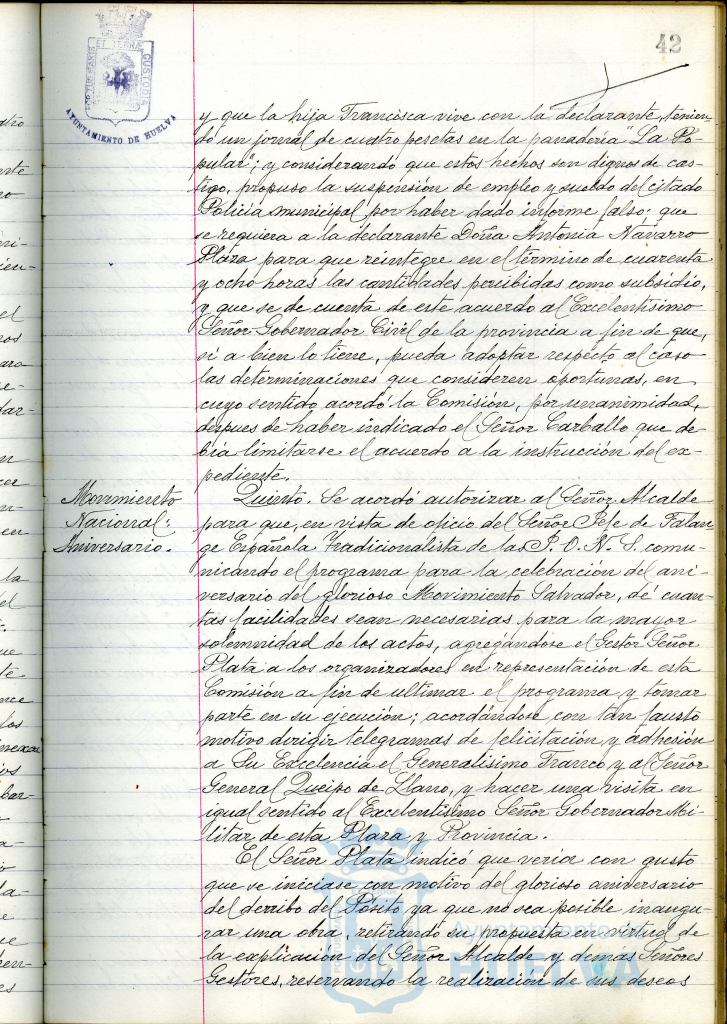 42
PORTUS MARIS ET TERRAE CUSTODIA
AYUNTAMIENTO DE HUELVA
y que la hija Francisca vive con la declarante, tenien-
do un jornal de cuatro pesetas en la panadería "La Po-
pular"; y considerando que estos hechos son dignos de cas-
tigo, propuso la suspensión de empleo y sueldo del citado
Policía municipal por haber dado informe falso; que
se requiera a la declarante Doña Antonia Navarro
Plaza para que reintegre en el término de cuarenta
y ocho horas las cantidades percibidas como subsidio,
y que se de cuenta de este acuerdo al Excelentísimo
Señor Gobernador Civil de la provincia a fin de que,
si a bien lo tiene, pueda adoptar respecto al caso
las determinaciones que consideren oportunas, en
cuyo sentido acordó la Comisión, por unanimidad,
despues de haber indicado el Señor Carballo que de
bía limitarse el acuerdo a la instrucción del ex-
pediente.
Movimiento
Nacional:
Aniversario.
Quinto. Se acordó autorizar al Señor Alcalde
para que, en vista de oficio del Señor Jefe de Falan
ge Española Tradicionalista de las J.O.N.S. comu-
nicando el programa para la celebración del ani-
versario del glorioso Movimiento Salvador, dé cuan-
tas facilidades sean necesarias para la mayor
solemnidad de los actos, agregándose el Gestor Señor
Plata a los organizadores en representación de esta
Comisión a fin de ultimar el programa y tomar
parte en su ejecución; acordándose, con tan fausto
motivo dirigir telegramas de felicitación y adhesión
a Su Excelencia el Generalísimo Franco y al Señor
General Queipo de Llano, y hacer una visita en
igual sentido al Excelentísimo Señor Gobernador Mi-
litar de esta Plaza y Provincia.
El Señor Plata indicó que vería con gusto
que se iniciase con motivo del glorioso aniversario
del derribo del Pósito ya que no sea posible inaugu-
rar una obra, retirando su propuesta en virtud de
la explicación del Señor Alcalde y demás Señores
Gestores, reservando la realización de sus deseos
Ayuntamiento de
HUELVA